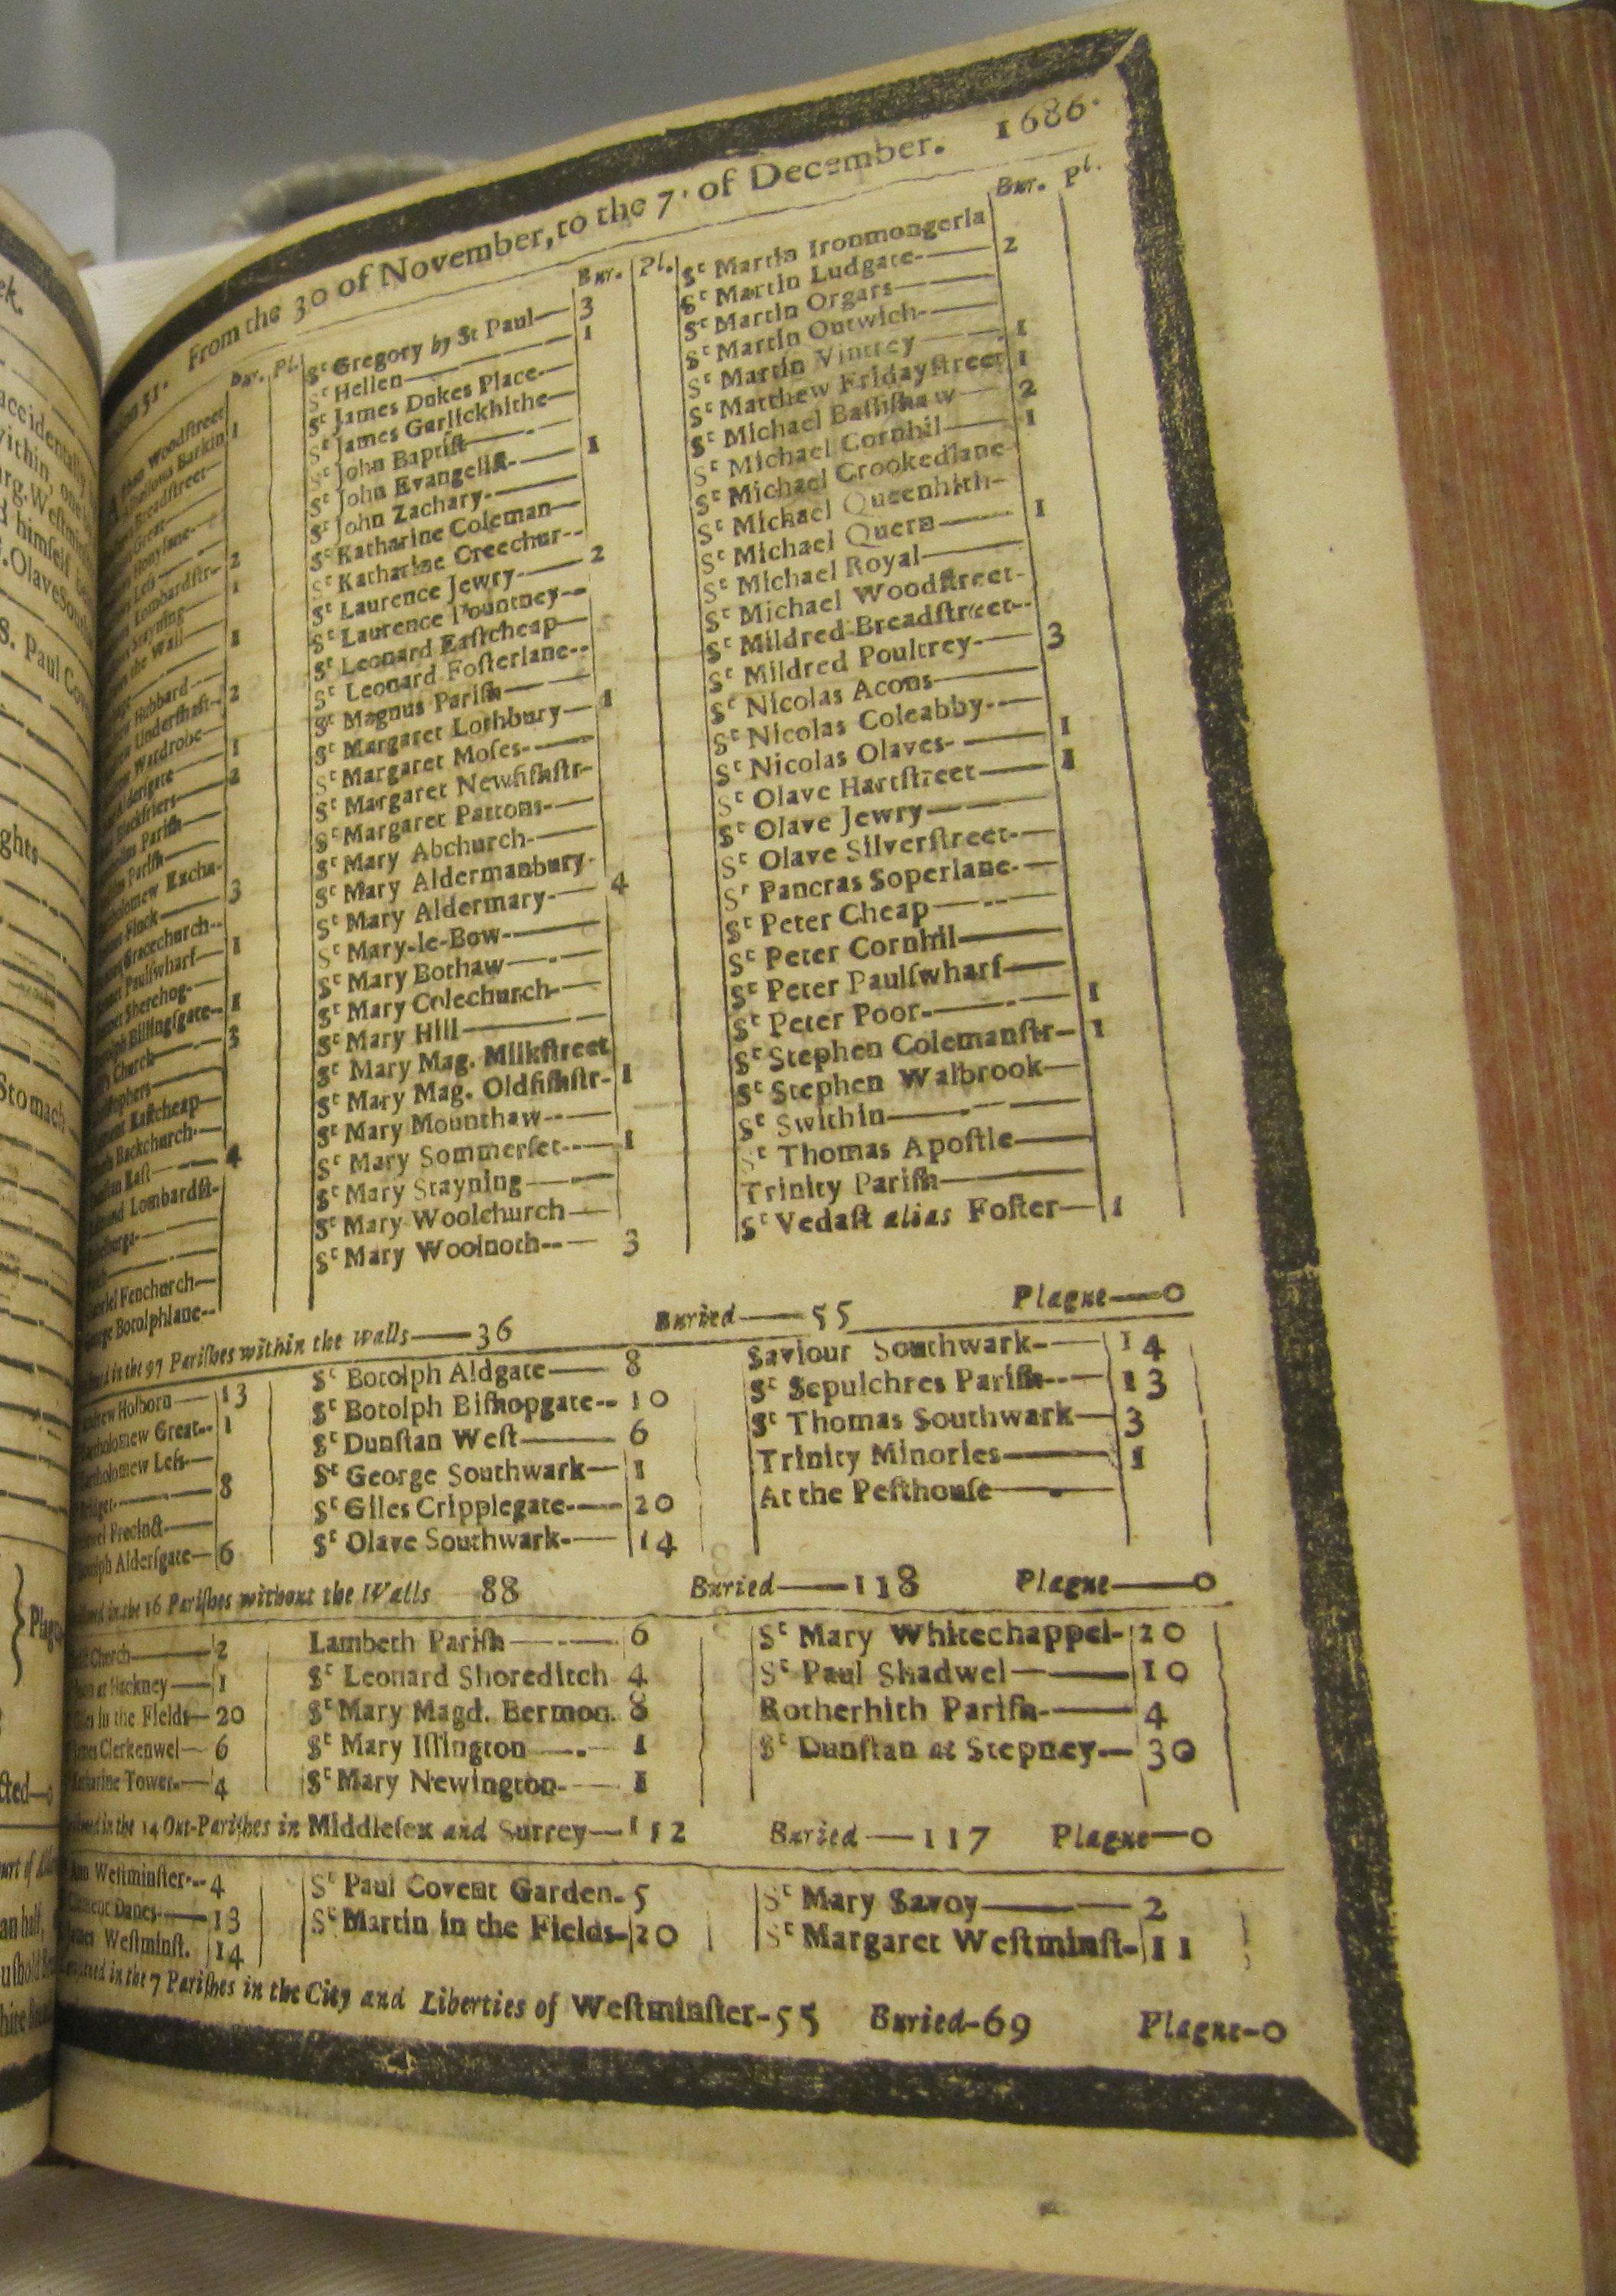 From the 30 of November, to the 7. of December. 1686.
Bur. Pl.
Woodstreet
Barkin 1
Breadstreet
Great
Honylane
Less
Lombardstr- 2
Stayning 1
the Wall
1
Hubbard
Undershaft 2
Wardrobe
1
Blackfriers 2
Parish
Parish
Excha-
3
Gracechurch
Paulswharf 1
Sherehog
Billingsgate 1
Church 3
Eastcheap
Backchurch
East 4
Lombardst-
Fenchurch
Botolphlane
Bur. Pl.
St Gregory by St Paul 3
St Hellen 1
St James Dukes Place
St James Garlickhithe
St John Baptist
St John Evangelist 1
St John Zachary
St Katharine Coleman
St Katharine Creechur
St Laurence Jewry 2
St Laurence Pountney
St Leonard Eastcheap
St Leonard Fosterlane
St Magnus Parish
St Margaret Lothbury 1
St Margaret Moses
St Margaret Newfishstr-
St Margaret Pattons
St Mary Abchurch
St Mary Aldermanbury
St Mary Aldermary 4
St Mary-le-Bow
St Mary Bothaw
St Mary Colechurch
St Mary Hill
St Mary Mag. Milkstreet
St Mary Mag. Oldfishstr- 1
St Mary Mounthaw
St Mary Sommerset 1
St Mary Stayning
St Mary Woolchurch
St Mary Woolnoth 3
Bur. Pl.
St Martin Ironmongerla
St Martin Ludgate 2
St Martin Orgars
St Martin Outwich
St Martin Vintrey 1
St Matthew Fridaystreet 1
St Michael Bassishaw 2
St Michael Cornhil 1
St Michael Crookedlane
St Michael Queenhith
St Michael Quern 1
St Michael Royal
St Michael Woodstreet
St Mildred Breadstreet
St Mildred Poultrey 3
St Nicolas Acons
St Nicolas Coleabby
St Nicolas Olaves 1
St Olave Hartstreet 1
St Olave Jewry
St Olave Silverstreet
St Pancras Soperlane
St Peter Cheap
St Peter Cornhil
St Peter Paulswharf
St Peter Poor 1
St Stephen Colemanstr 1
St Stephen Walbrook
St Swithin
St Thomas Apostle
Trinity Parish
St Vedast alias Foster 1
in the 97 Parishes within the Walls—36 Buried—55 Plague—0
Andrew Holborn 13
Bartholomew Great 1
Bartholomew Less
Bridget 8
Precinct
Botolph Aldersgate 6
St Botolph Aldgate 8
St Botolph Bishopgate 10
St Dunstan West 6
St George Southwark 1
St Giles Cripplegate 20
St Olave Southwark 14
Saviour Southwark 14
St Sepulchres Parish 13
St Thomas Southwark 3
Trinity Minories 1
At the Pesthouse
in the 16 Parishes without the Walls 88 Buried—118 Plague—0
Church 2
at Hackney 1
in the Fields 20
James Clerkenwel 6
Katharine Tower 4
Lambeth Parish 6
St Leonard Shoreditch 4
St Mary Magd. Bermon. 8
St Mary Islington 1
St Mary Newington 1
St Mary Whitechappel 20
St Paul Shadwel 10
Rotherhith Parish 4
St Dunstan at Stepney 30
in the 14 Out-Parishes in Middlesex and Surrey—112 Buried—117 Plague—0
Ann Westminster 4
Clement Danes 13
James Westminst. 14
St Paul Covent Garden 5
St Martin in the Fields 20
St Mary Savoy 2
St Margaret Westminst 11
in the 7 Parishes in the City and Liberties of Westminster-55 Buried-69 Plague-0